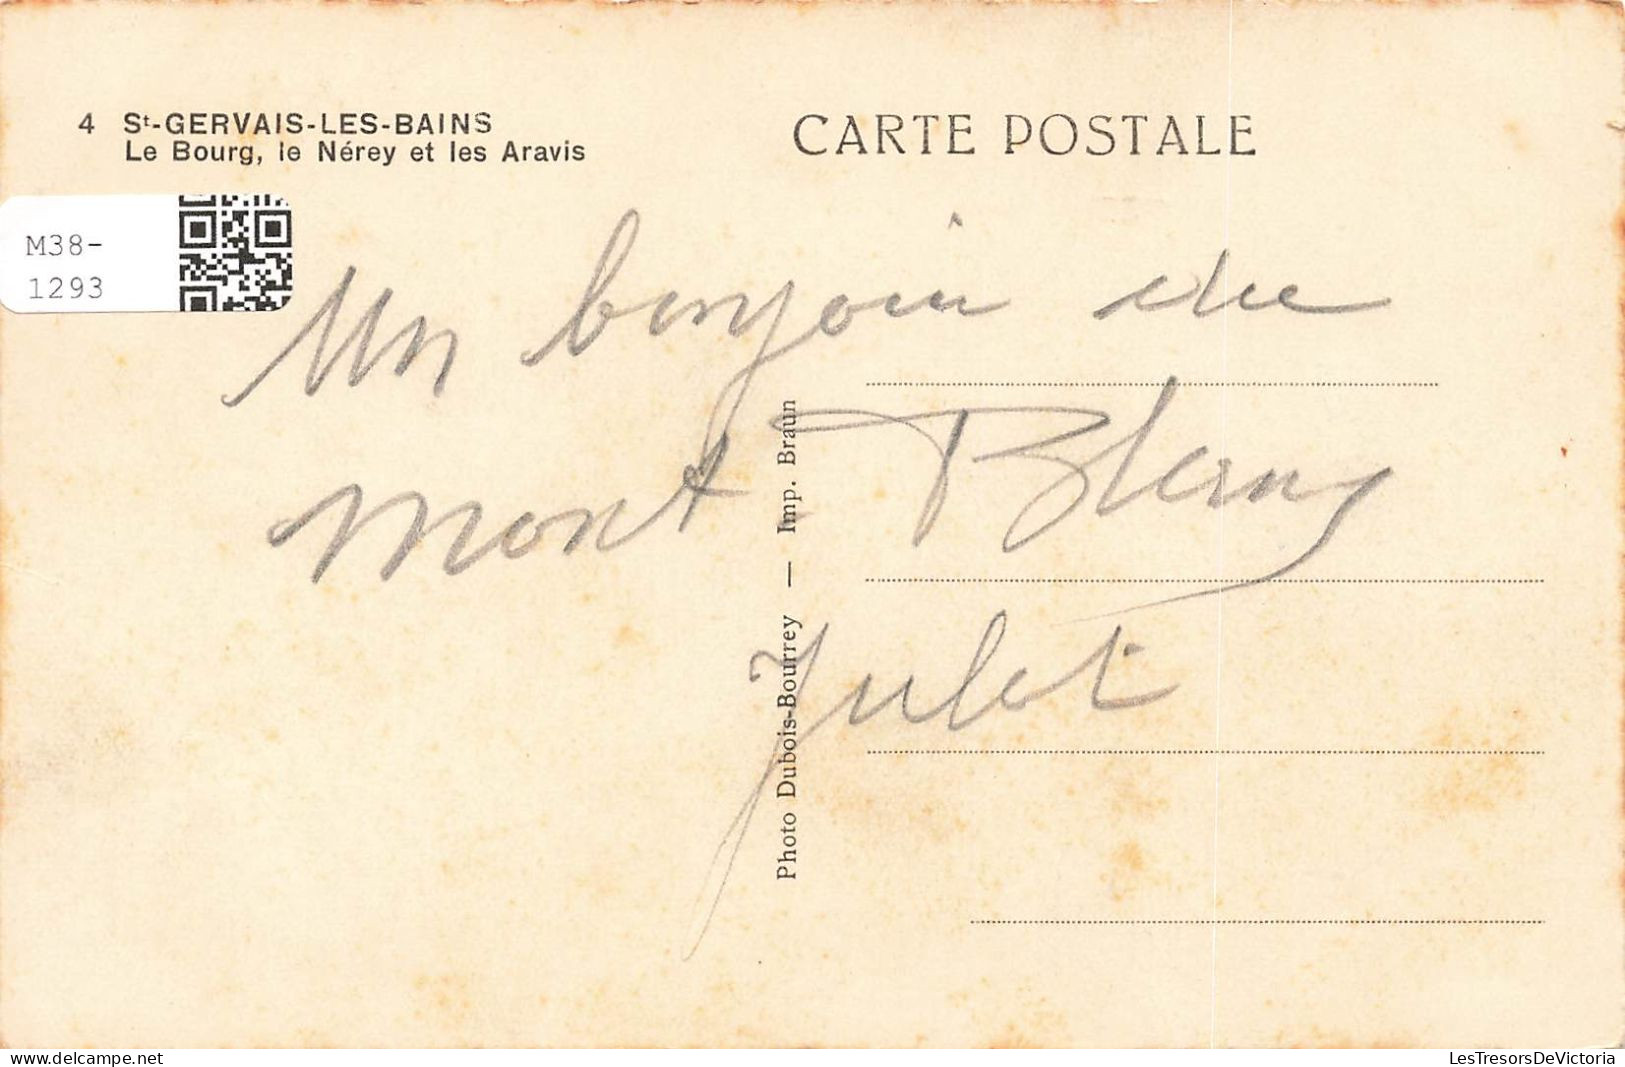 4 St-GERVAIS-LES-BAINS
Le Bourg, le Nérey et les Aravis
CARTE POSTALE
M38-
1293
Un bonjour du
mont Blanc
Photo Dubois-Bourrey — Imp. Braun
LesTresorsDeVictoria
delcampe.net